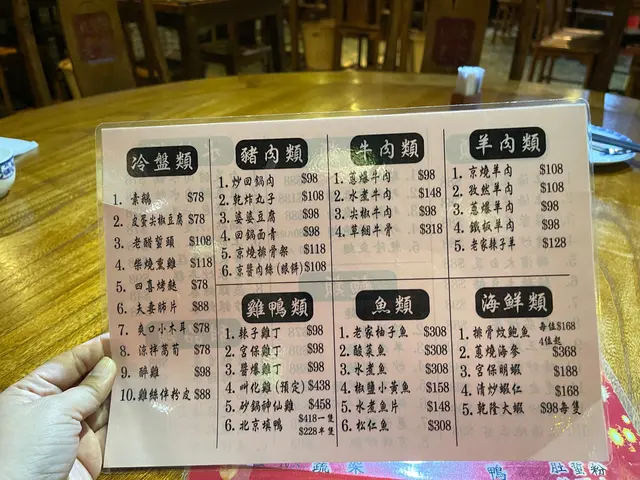 冷盤類
1. 素鵝 $78
2. 皮蛋尖椒豆腐 $78
3. 老醋蜇頭 $108
4. 柴燒熏雞 $118
5. 四喜烤麩 $78
6. 夫妻肺片 $88
7. 爽口小木耳 $78
8. 涼拌萵筍 $78
9. 醉雞 $98
10. 雞絲伴粉皮 $88
豬肉類
1. 炒回鍋肉 $98
2. 乾炸丸子 $108
3. 婆婆豆腐 $98
4. 回鍋面青 $98
5. 京燒排骨架 $118
6. 京醬肉絲(跟餅) $108
牛肉類
1. 蔥爆牛肉 $98
2. 水煮牛肉 $148
3. 尖椒牛肉 $98
4. 草綑牛骨 $318
羊肉類
1. 京燒羊肉 $108
2. 孜然羊肉 $108
3. 蔥爆羊肉 $98
4. 鐵板羊肉 $98
5. 老家辣子羊 $128
雞鴨類
1. 辣子雞丁 $98
2. 宮保雞丁 $98
3. 醬爆雞丁 $98
4. 叫化雞(預定) $438
5. 砂鍋神仙雞 $458
6. 北京填鴨 $418一隻
$228半隻
魚類
1. 老家柚子魚 $308
2. 酸菜魚 $308
3. 水煮魚 $308
4. 椒鹽小黃魚 $158
5. 水煮魚片 $148
6. 松仁魚 $308
海鮮類
1. 排骨炆鮑魚 每位$168
4位起
2. 蔥燒海參 $368
3. 宮保明蝦 $188
4. 清炒蝦仁 $168
5. 乾隆大蝦 $98每隻
蔬菜 鴨 肚蛋粉